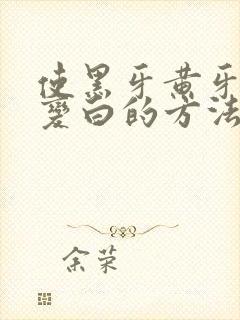 使黑牙黄牙
变白的方法
余荣